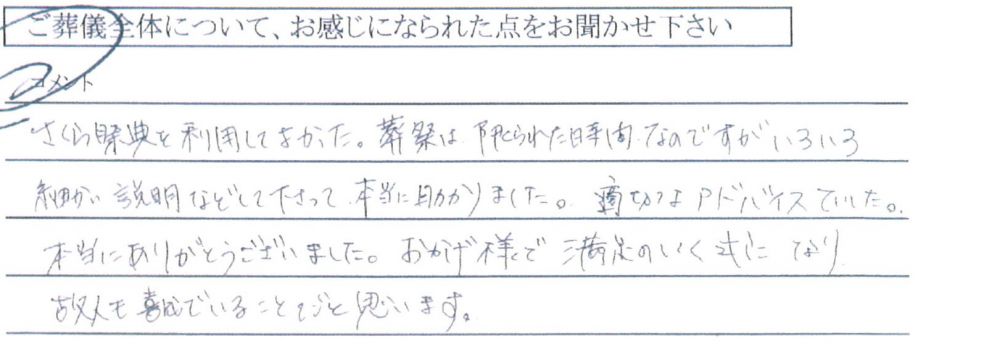 ご葬儀全体について、お感じになられた点をお聞かせ下さい
コメント
さくら祭典を利用してよかった。葬祭は限られた時間なのですがいろいろ
細かい説明などして下さって本当に助かりました。適切なアドバイスでした。
本当にありがとうございました。おかげ様で満足のいく式になり
故人も喜んでいることと思います。